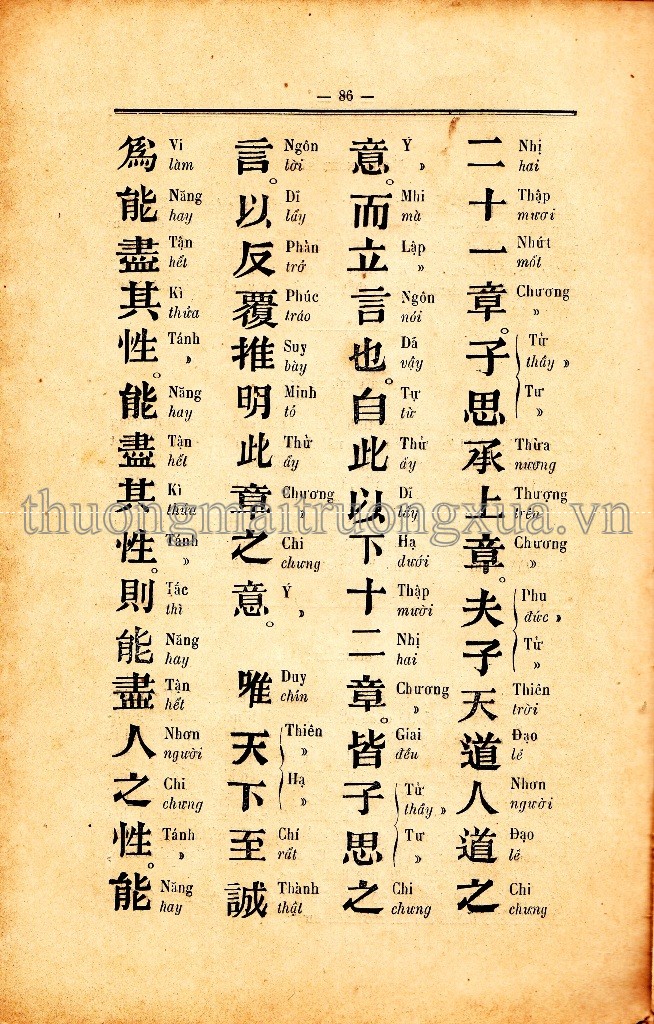 — 86 —
二十一章。子思承上章。夫子天道人道之
Nhị hai
Thập mươi
Nhứt mốt
Chương »
Tử thầy »
Tư »
Thừa nương
Thượng trên
Chương »
Phu đức »
Tử »
Thiên trời
Đạo lẽ
Nhơn người
Đạo lẽ
Chi chưng
意。而立言也。自此以下十二章。皆子思之
Ý »
Nhi mà
Lập »
Ngôn nói
Dã vậy
Tự từ
Thử ấy
Dĩ lấy
Hạ dưới
Thập mười
Nhị hai
Chương »
Giai đều
Tử thầy »
Tư »
Chi chưng
言。以反覆推明此章之意。唯天下至誠
Ngôn lời
Dĩ lấy
Phản trở
Phúc tráo
Suy bày
Minh tỏ
Thử ấy
Chương »
Chi chưng
Ý »
Duy chỉn
Thiên »
Hạ »
Chí rất
Thành thật
爲能盡其性。能盡其性。則能盡人之性。能
Vi làm
Năng hay
Tận hết
Kì thửa
Tánh »
Năng hay
Tận hết
Kì thửa
Tánh »
Tắc thì
Năng hay
Tận hết
Nhơn người
Chi chưng
Tánh »
Năng hay
thuongmaitruongxua.vn